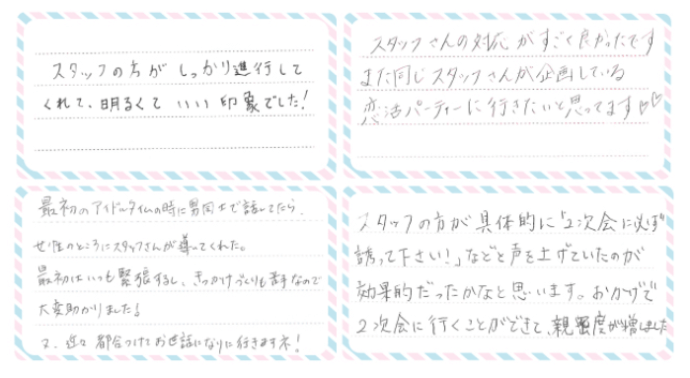 スタッフの方がしっかり進行して
くれて、明るくていい印象でした!
スタッフさんの対応がすごく良かったです
また同じスタッフさんが企画している
恋活パーティーに行きたいと思ってます♡♡
最初のアイドルタイムの時に男同士で話してたら、
女性のところにスタッフさんが導いてくれた。
最初はいつも緊張するし、きっかけづくりも苦手なので
大変助かりました!
又、近々都合つけてお世話になりに行きますネ!
スタッフの方が具体的に「2次会に必ず
誘って下さい!」などと声を上げていたのが
効果的だったかなと思います。おかげで
2次会に行くことができて、親密度が増しました